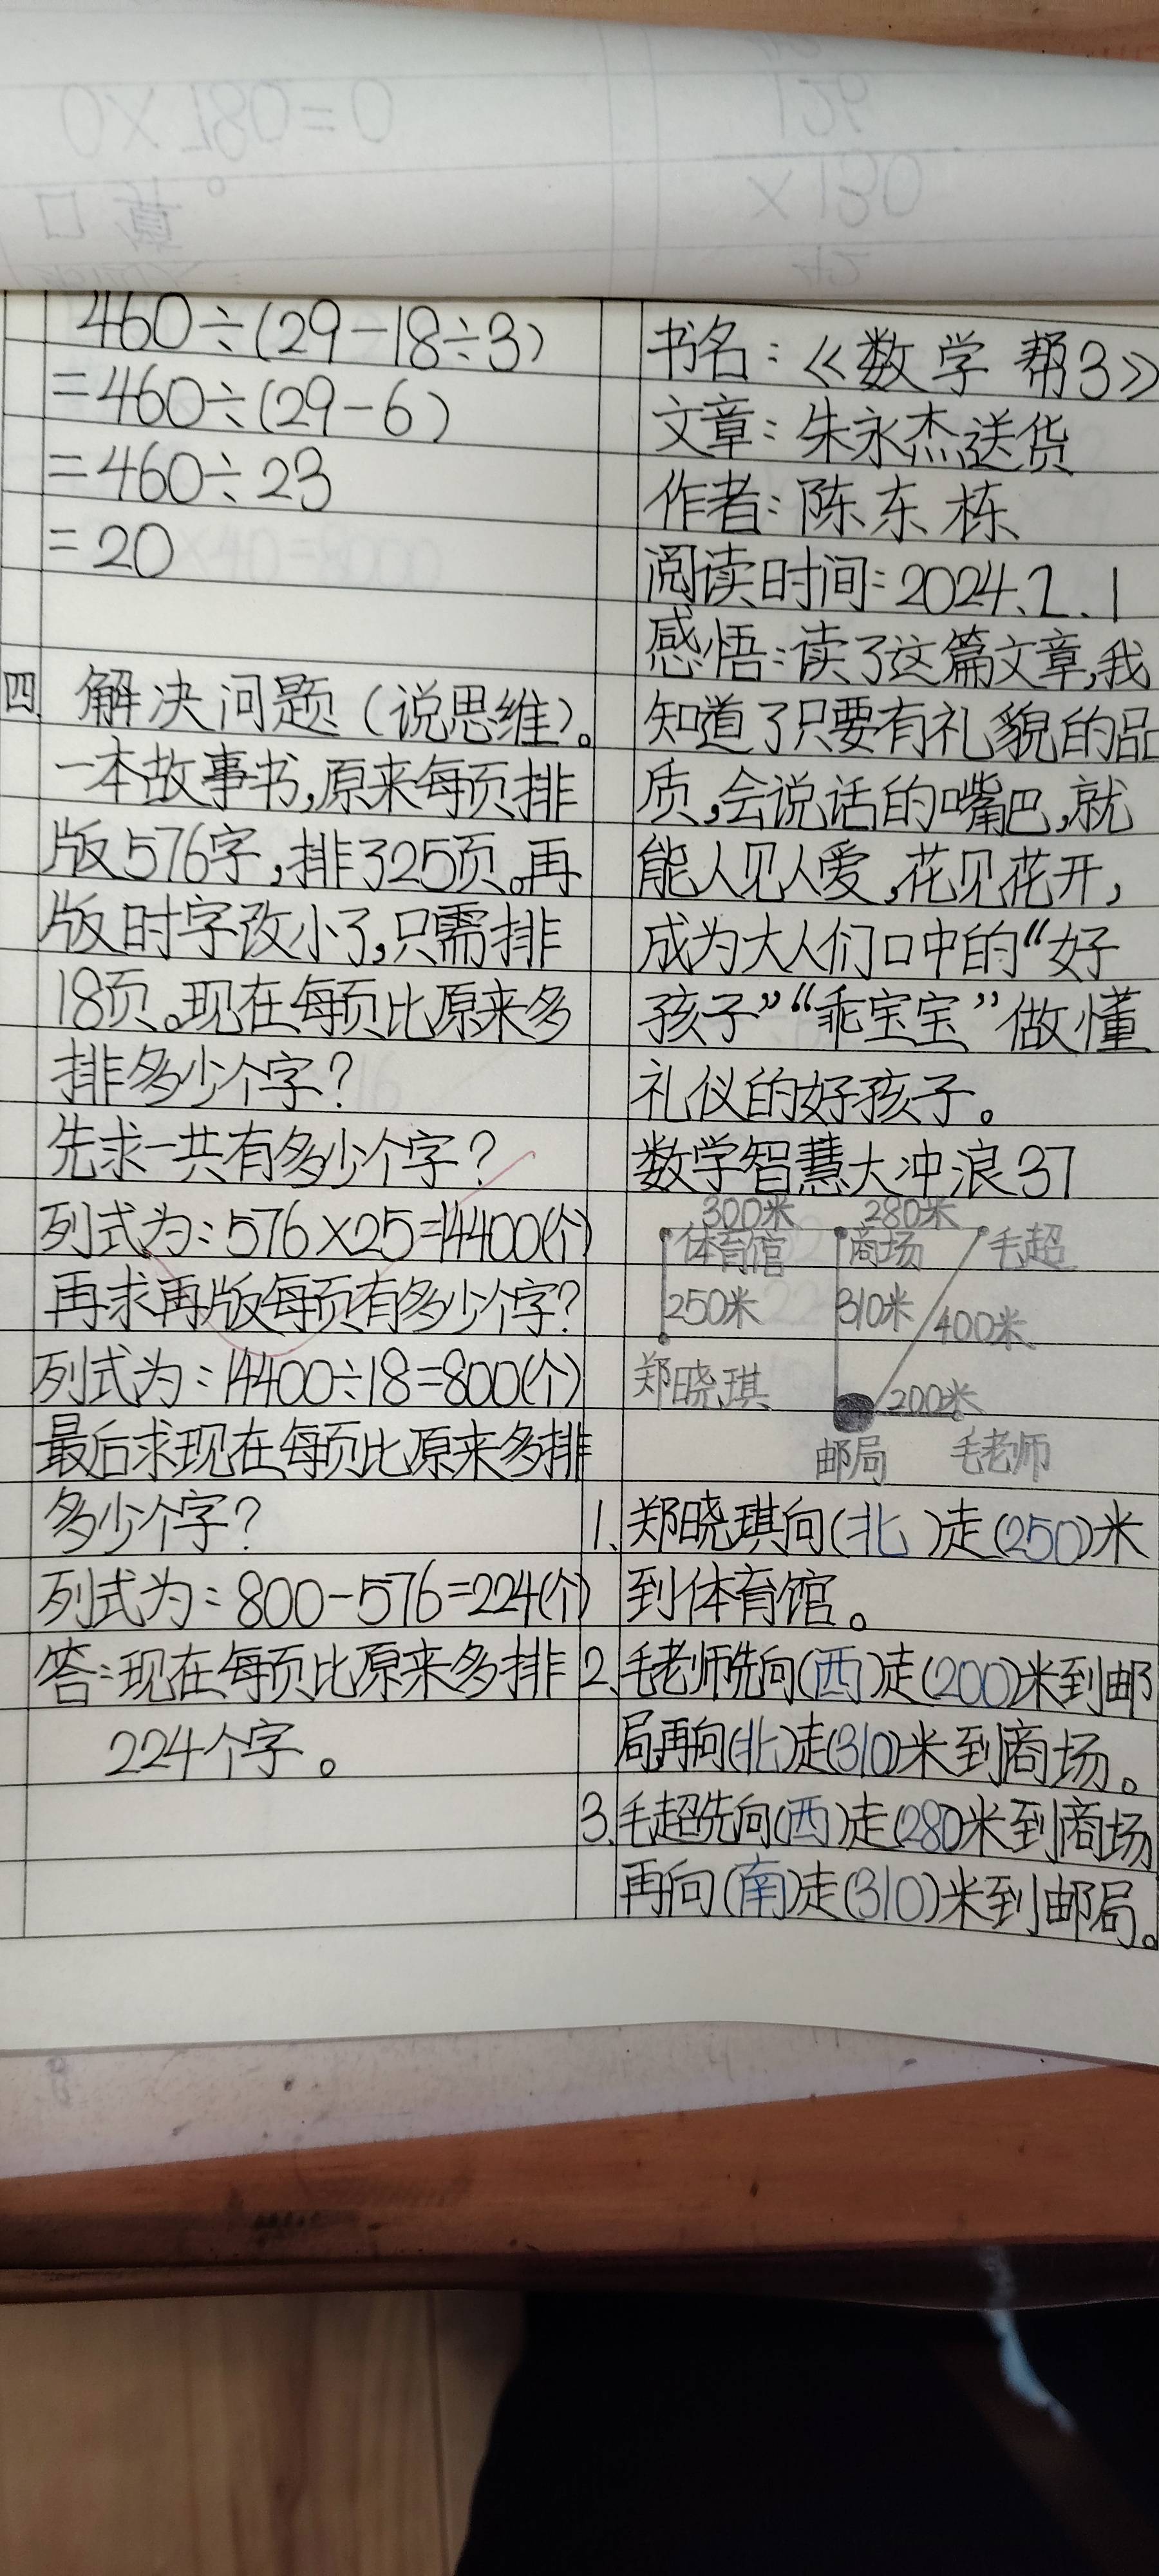 460÷(29-18÷3)
=460÷(29-6)
=460÷23
=20
四 解决问题（说思维）。
一本故事书,原来每页排
版576字,排了25页。再
版时字改小了,只需排
18页。现在每页比原来多
排多少个字?
先求一共有多少个字?
列式为:576×25=14400(个)
再求再版每页有多少个字?
列式为:14400÷18=800(个)
最后求现在每页比原来多排
多少个字?
列式为:800-576=224(个)
答:现在每页比原来多排
224个字。
书名:《数学帮3》
文章:朱永杰送货
作者:陈东栋
阅读时间:2024.2.1
感悟:读了这篇文章,我
知道了只要有礼貌的品
质,会说话的嘴巴,就
能人见人爱,花见花开,
成为大人们口中的“好
孩子”“乖宝宝”做懂
礼仪的好孩子。
数学智慧大冲浪37
300米 280米
体育馆 商场 毛超
250米 310米 400米
郑晓琪 200米
邮局 毛老师
1.郑晓琪向(北)走(250)米
到体育馆。
2.毛老师先向(西)走(200)米到邮
局,再向(北)走(310)米到商场。
3.毛超先向(西)走(280)米到商场
再向(南)走(310)米到邮局。